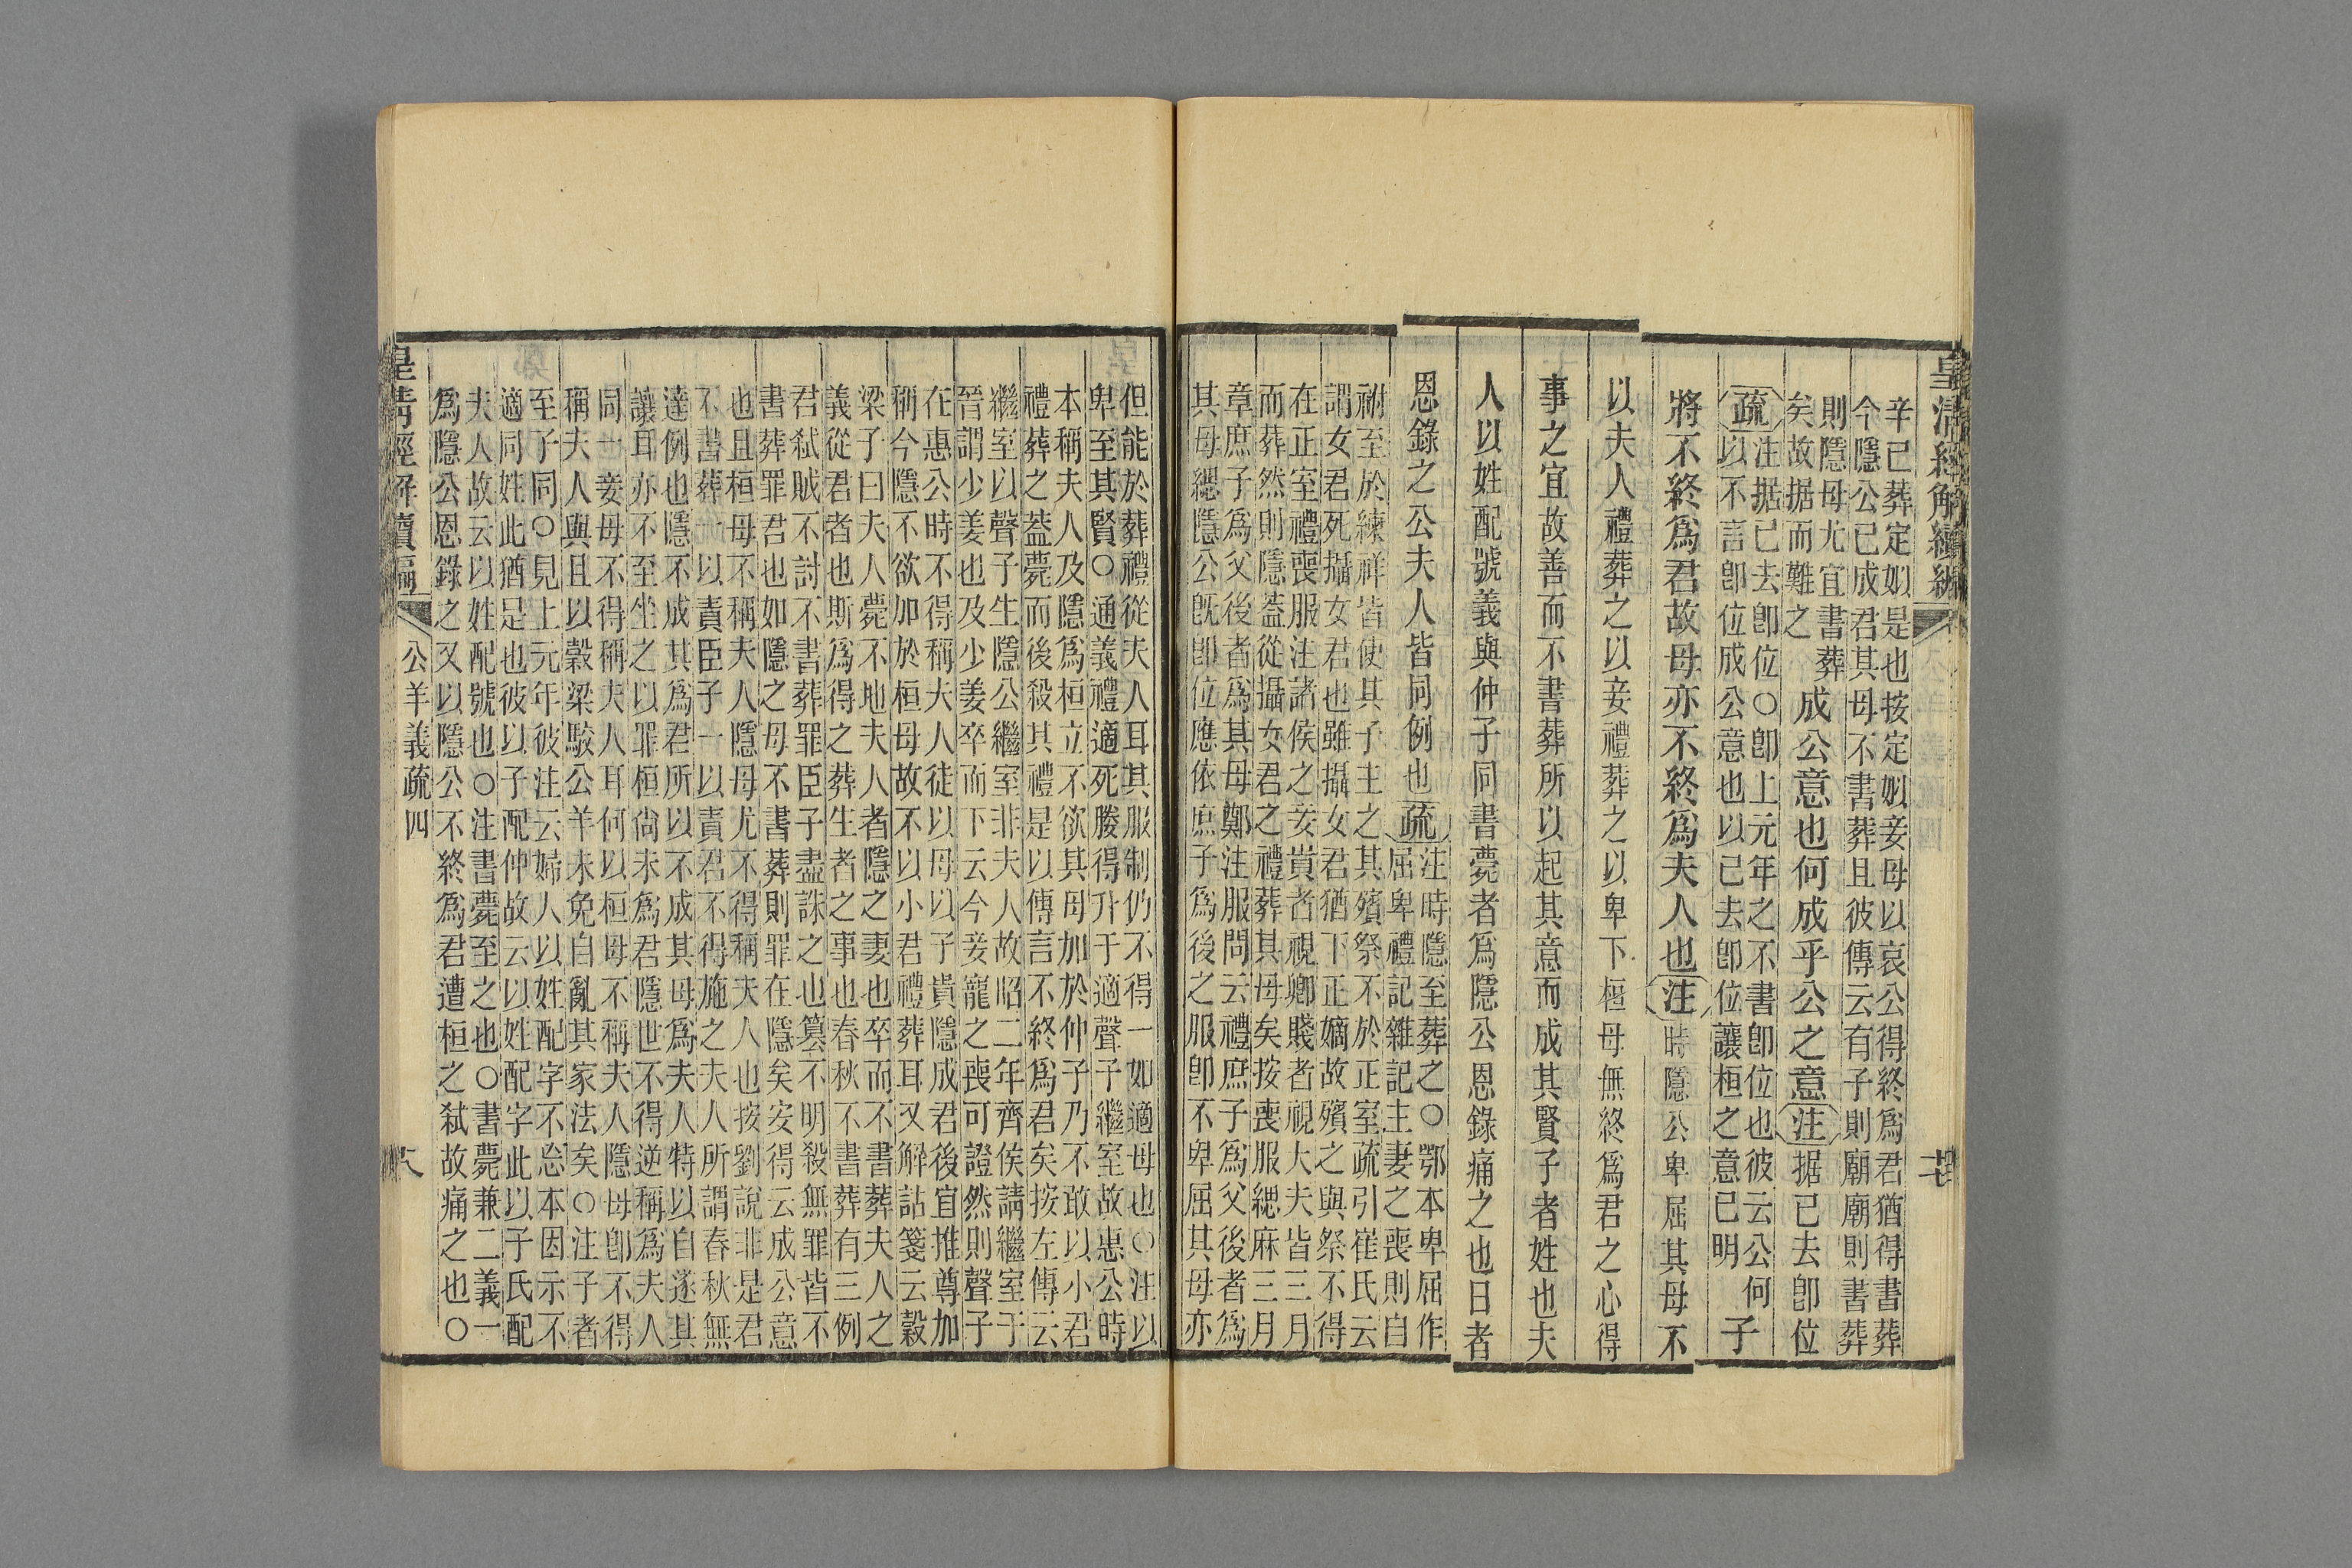 皇清經解續編
辛巳葬定姒是也按定姒妾母以哀公得終爲君猶得書葬
今隱公已成君其母不書葬且彼傳云有子則廟廟則書葬
則隱母尤宜書葬
矣故据而難之
成公意也何成乎公之意注据已去卽位
疏注据已去卽位〇卽上元年之不書卽位也彼云公何
以不言卽位成公意也以已去卽位讓桓之意已明
子
將不終爲君故母亦不終爲夫人也注時隱公卑屈其母不
以夫人禮葬之以妾禮葬之以卑下桓母無終爲君之心得
事之宜故善而不書葬所以起其意而成其賢子者姓也夫
人以姓配號義與仲子同書薨者爲隱公恩錄痛之也日者
恩錄之公夫人皆同例也
疏注時隱至葬之〇鄂本卑屈作
屈卑禮記雜記主妻之喪則自
祔至於練祥皆使其子主之其殯祭不於正室疏引崔氏云
謂女君死攝女君也雖攝女君猶下正嫡故殯之與祭不得
在正室禮喪服注諸侯之妾貴者視卿賤者視大夫皆三月
而葬然則隱蓋從攝女君之禮葬其母矣按喪服緦麻三月
章庶子爲父後者爲其母鄭注服問云禮庶子爲父後者爲
其母緦隱公旣卽位應依庶子爲後之服卽不卑屈其母亦
但能於葬禮從夫人耳其服制仍不得一如適母也〇注以
卑至其賢〇通義禮適死媵得升于適聲子繼室故惠公時
本稱夫人及隱爲桓立不欲其母加於仲子乃不敢以小君
禮葬之蓋薨而後殺其禮是以傳言不終爲君矣按左傳云
繼室以聲子生隱公繼室非夫人故昭二年齊侯請繼室于
晉謂少姜也及少姜卒而下云今妾寵之喪可證然則聲子
在惠公時不得稱夫人徒以母以子貴隱成君後宜推尊加
稱今隱不欲加於桓母故不以小君禮葬耳又解詁箋云穀
梁子曰夫人薨不地夫人者隱之妻也卒而不書葬夫人之
義從君者也斯爲得之葬生者之事也春秋不書葬有三例
君弑賊不討不書葬罪臣子盡誅之也篡不明殺無罪皆不
書葬罪君也如隱之母不書葬則罪在隱矣安得云成公意
也且桓母不稱夫人隱母尤不得稱夫人也按劉說非是君
不書葬一以責臣子一以責君不得施之夫人所謂春秋無
達例也隱不成其爲君所以不成其母爲夫人特以自遂其
讓耳亦不至坐之以罪桓尙未爲君隱世不得逆稱爲夫人
同一妾母不得稱夫人耳何以桓母不稱夫人隱母卽不得
稱夫人與且以穀梁駮公羊未免自亂其家法矣〇注子者
至子同〇見上元年彼注云婦人以姓配字不忘本因示不
適同姓此猶是也彼以子配仲故云以姓配字此以子氏配
夫人故云以姓配號也〇注書薨至之也〇書薨兼二義一
爲隱公恩錄之又以隱公不終爲君遭桓之弑故痛之也〇
皇淸經解續編
公羊義疏四